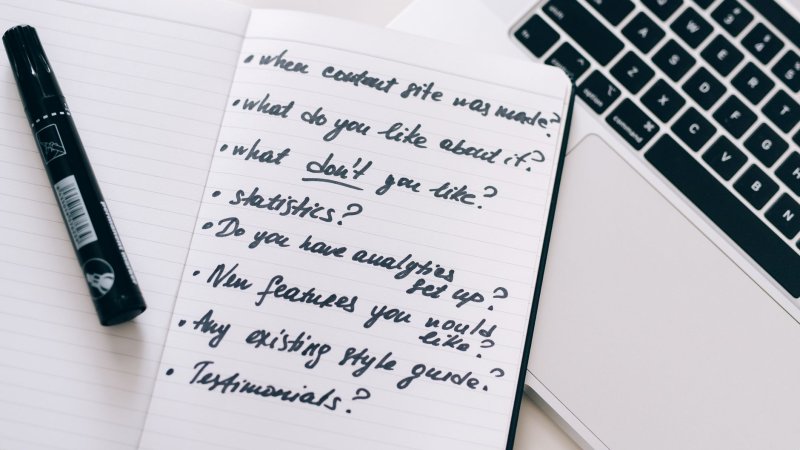 • when content site was made?
• what do you like about it?
• what don't you like?
• statistics?
• Do you have analytics
set up?
• New features you would
like?
• Any existing style guide?
• Testimonials?
shift
A
W
S
E
Z
D
R
X
F
T
C
G
V
H
B
N
option
command ⌘